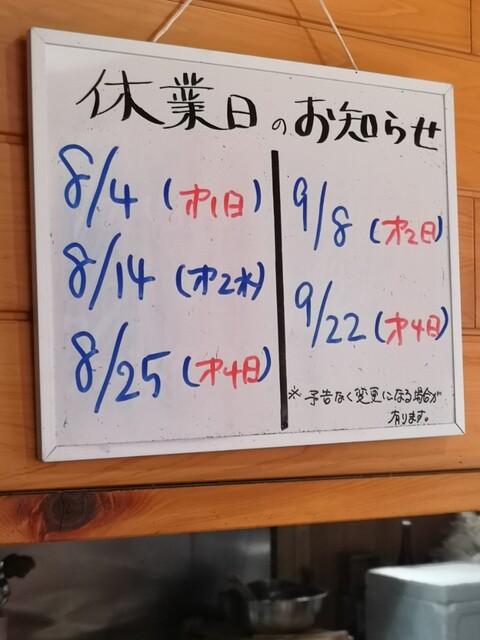 休業日のお知らせ
8/4(才1日)
8/14(才2水)
8/25(才4日)
9/8(才2日)
9/22(才4日)
※予告なく変更になる場合が
有ります。